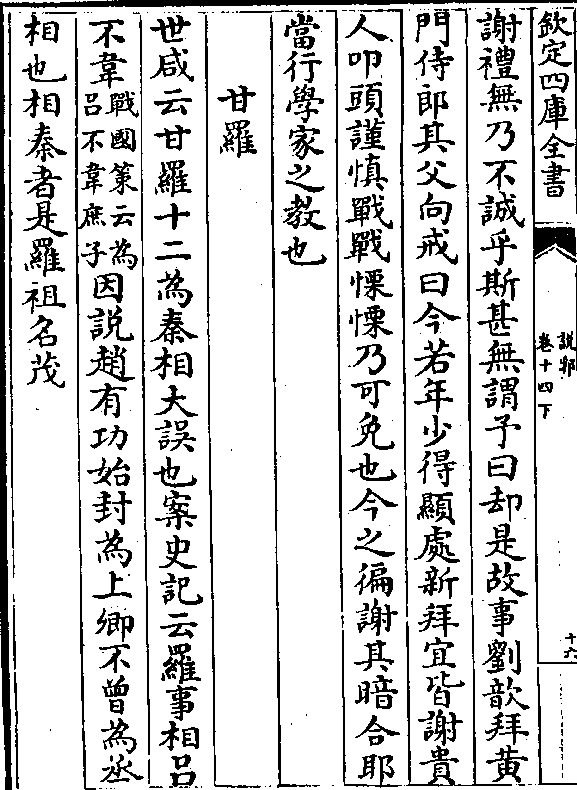 欽定四庫全書
說郛
卷十四下
十六
謝禮無乃不誠乎斯甚無謂予曰却是故事劉歆拜黄
門侍郎其父向戒曰今若年少得顯處新拜宜皆謝貴
人叩頭謹慎戰戰慄慄乃可免也今之徧謝其暗合耶
當行學家之教也
甘羅
世咸云甘羅十二為秦相大誤也案史記云羅事相吕
不韋戰國策云為吕不韋庶子因說趙有功始封為上卿不曽為丞
相也相秦者是羅祖名茂